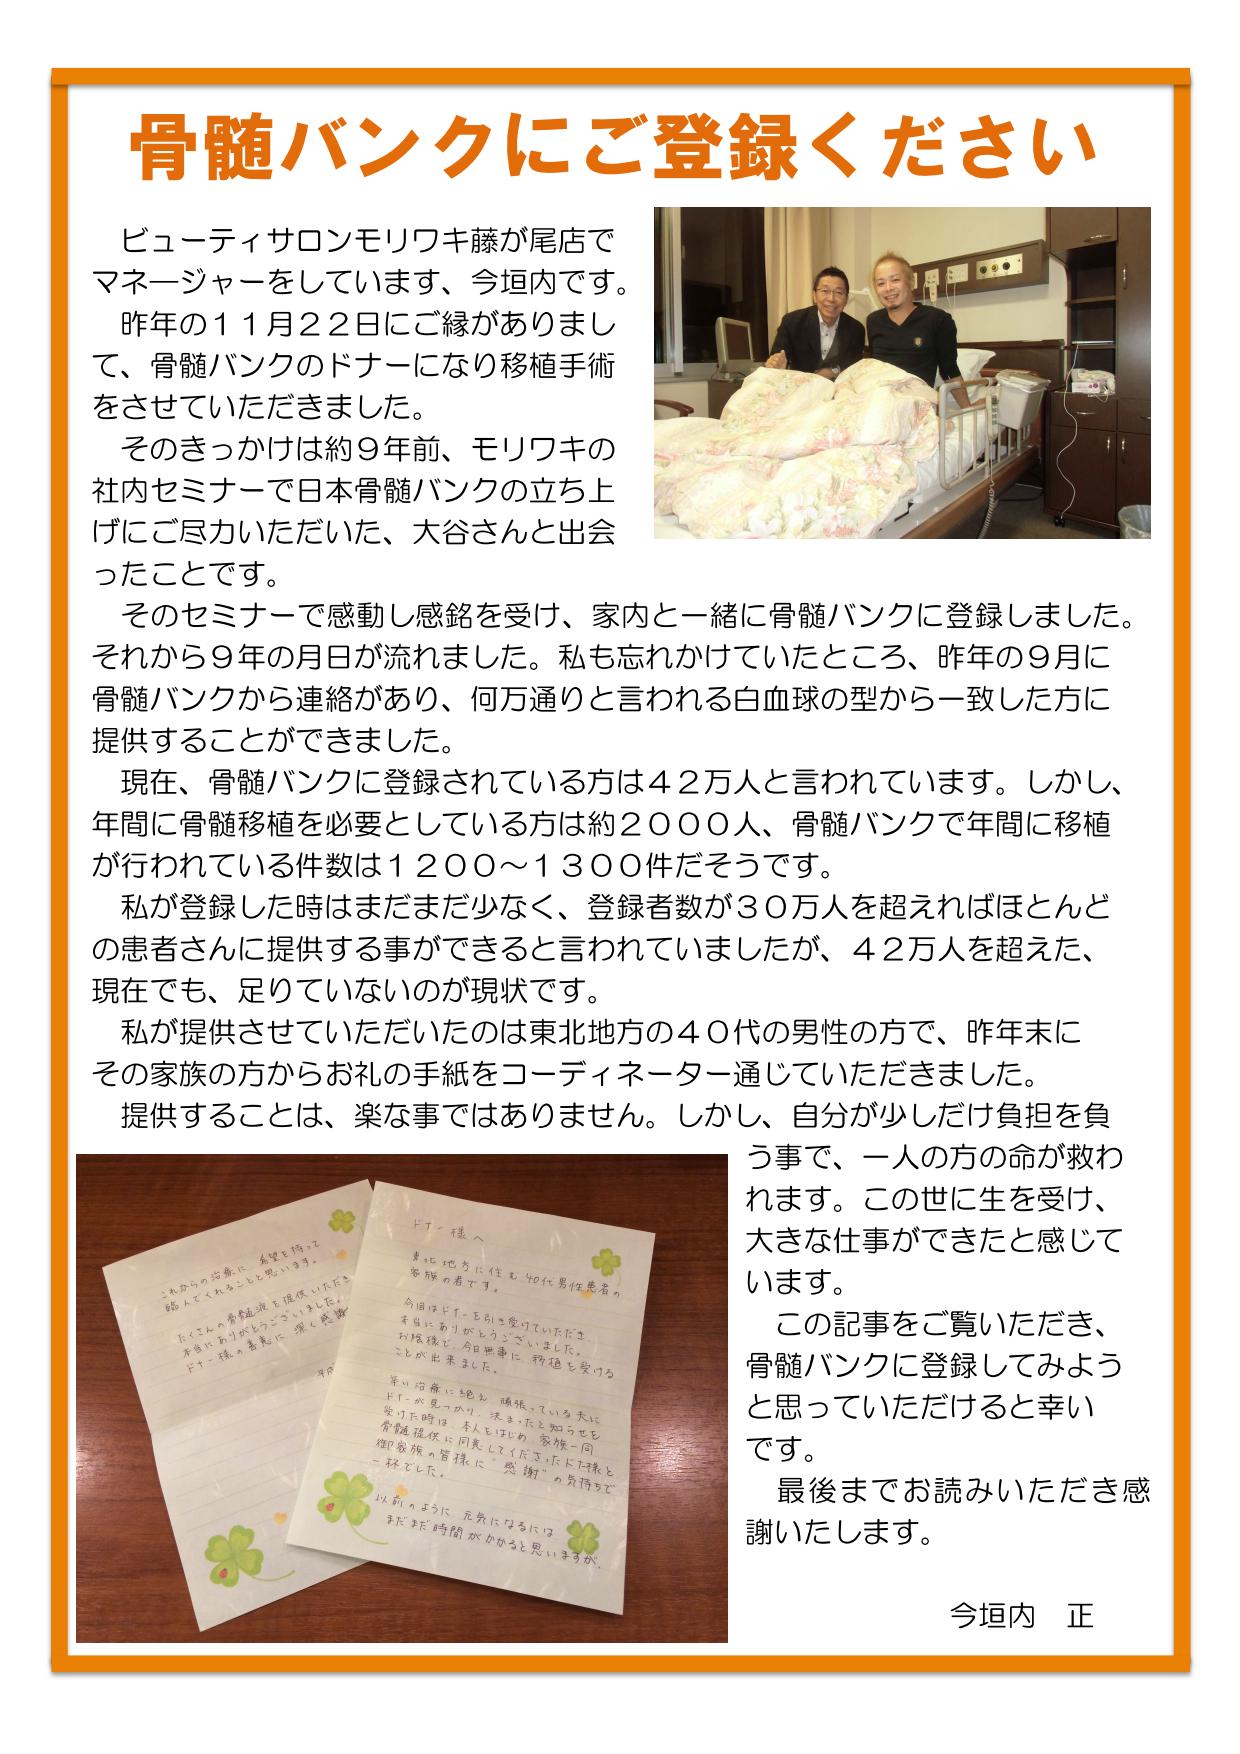 骨髄バンクにご登録ください
　ビューティサロンモリワキ藤が尾店で
マネージャーをしています、今垣内です。
　昨年の１１月２２日にご縁がありまし
て、骨髄バンクのドナーになり移植手術
をさせていただきました。
　そのきっかけは約９年前、モリワキの
社内セミナーで日本骨髄バンクの立ち上
げにご尽力いただいた、大谷さんと出会
ったことです。
　そのセミナーで感動し感銘を受け、家内と一緒に骨髄バンクに登録しました。
それから９年の月日が流れました。私も忘れかけていたところ、昨年の９月に
骨髄バンクから連絡があり、何万通りと言われる白血球の型から一致した方に
提供することができました。
　現在、骨髄バンクに登録されている方は４２万人と言われています。しかし、
年間に骨髄移植を必要としている方は約２０００人、骨髄バンクで年間に移植
が行われている件数は１２００～１３００件だそうです。
　私が登録した時はまだまだ少なく、登録者数が３０万人を超えればほとんど
の患者さんに提供する事ができると言われていましたが、４２万人を超えた、
現在でも、足りていないのが現状です。
　私が提供させていただいたのは東北地方の４０代の男性の方で、昨年末に
その家族の方からお礼の手紙をコーディネーター通じていただきました。
　提供することは、楽な事ではありません。しかし、自分が少しだけ負担を負
う事で、一人の方の命が救わ
れます。この世に生を受け、
大きな仕事ができたと感じて
います。
　この記事をご覧いただき、
骨髄バンクに登録してみよう
と思っていただけると幸い
です。
　最後までお読みいただき感
謝いたします。
今垣内　正
ドナー様へ
東北地方に住む40代男性患者の
家族の者です。
今回はドナーを引き受けていただき、
本当にありがとうございました。
お陰様で、今日無事に、移植を受ける
ことが出来ました。
辛い治療に絶え、頑張っている夫に
ドナーが見つかり、決まったと知らせを
受けた時は、本人をはじめ、家族一同
骨髄提供に同意してくださったドナー様と
御家族の皆様に"感謝"の気持ちで
一杯でした。
以前のように、元気になるには
まだまだ時間がかかると思いますが、
これからの治療に、希望を持って
臨んでくれることと思います。
たくさんの骨髄液を提供いただき
本当にありがとうございました。
ドナー様の善意に深く感謝